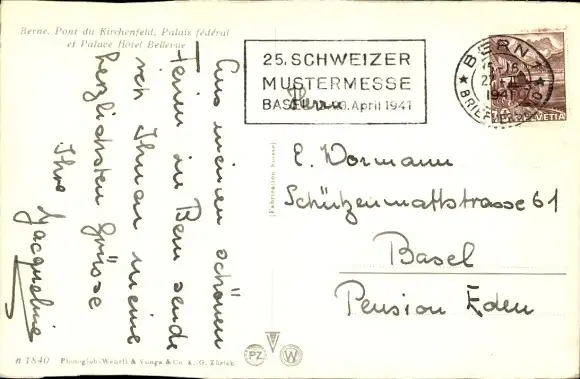 Berne. Pont du Kirchenfeld, Palais fédéral
et Palace Hôtel Bellevue
Aus meinen schönen
Ferien in Bern sende
ich Ihnen meine
herzlichsten Grüsse
Ihre Jacqueline
25. SCHWEIZER
MUSTERMESSE
BASEL April 1941
BERN 1
1941
BRIEFVERSAND
HELVETIA
Herrn
E. Wormann
Schützenmattstrasse 61
Basel
Pension Eden
(Fabrication Suisse)
R 1840 Photoglob-Wehrli & Vouga & Co. A.-G. Zürich
PZ
W